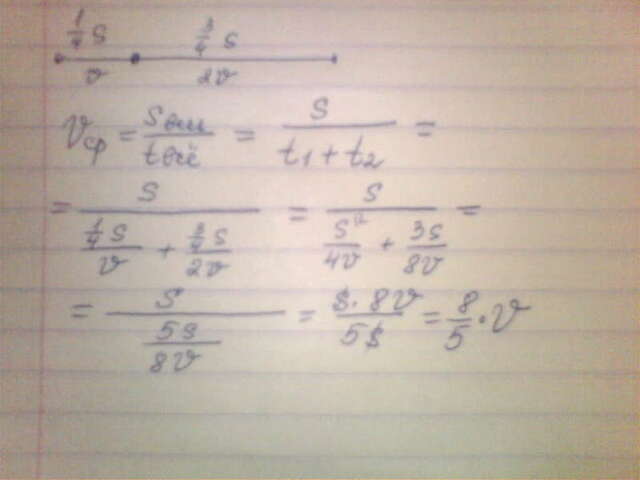 1/4 s 3/4 s
v 2v
Vср = s весь / t всё = s / (t1 + t2) =
= s / ((1/4 s)/v + (3/4 s)/2v) = s / (s/4v + 3s/8v) =
= s / (5s/8v) = s·8v / 5s = 8/5 · v